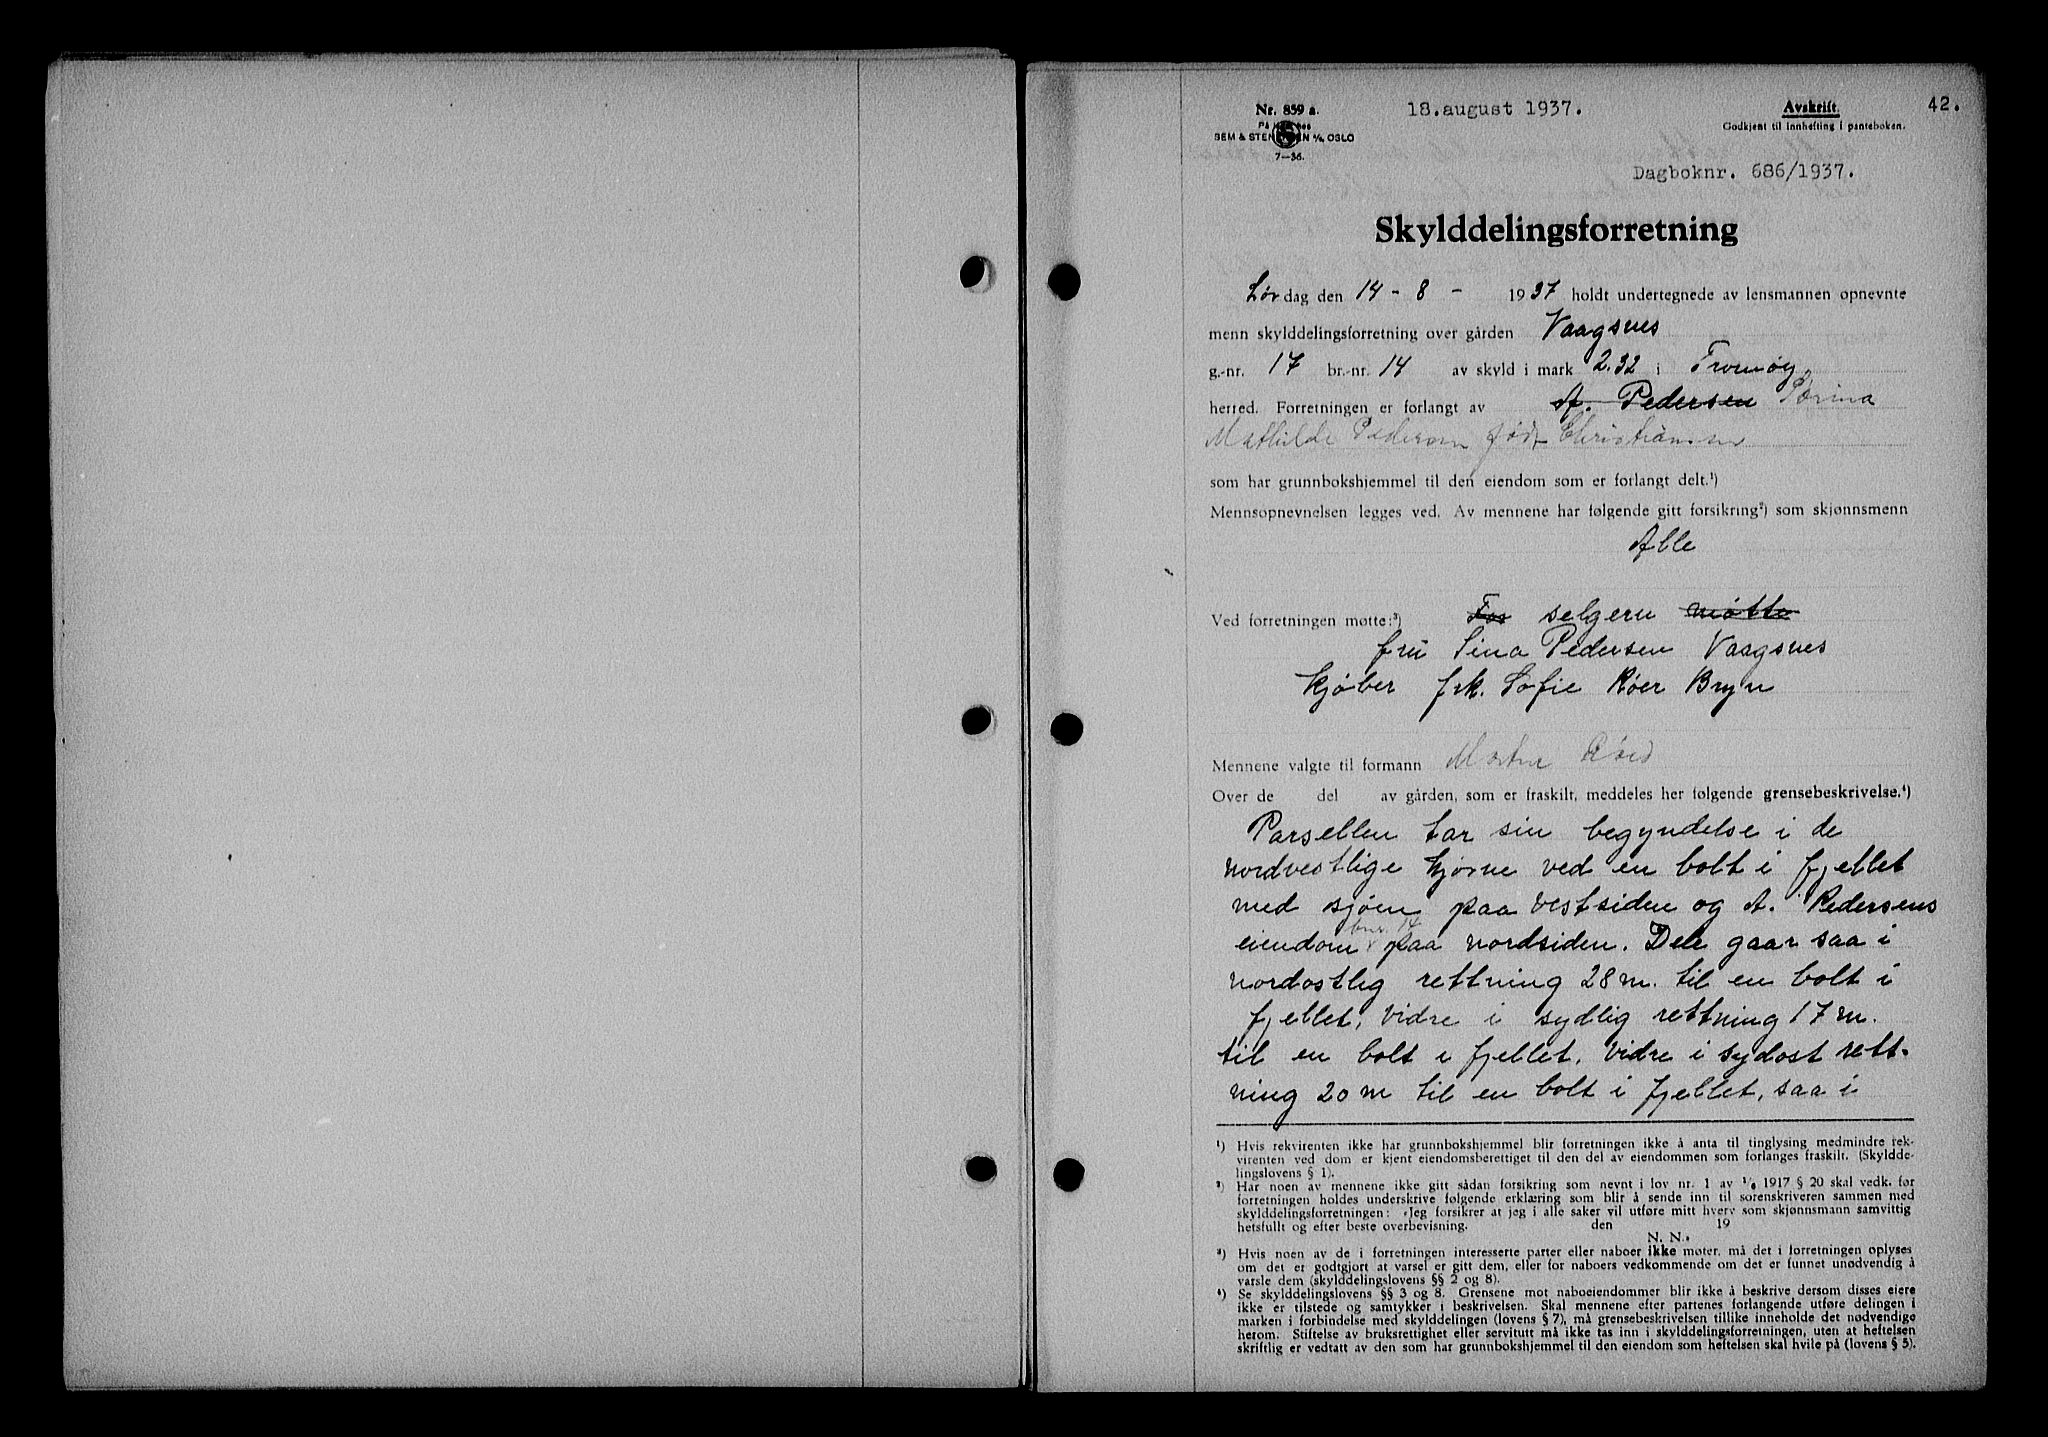 Nr. 859 a.
18.august 1937.
Avskrift.
42.
Godkjent til innhefting i panteboken.
SEM & STENERSEN A/S OSLO
7—36.
Dagboknr. 686/1937.
Skylddelingsforretning
Lørdag den 14 - 8 - 1937 holdt undertegnede av lensmannen opnevnte
menn skylddelingsforretning over gården Vaagsnes
g.-nr. 17 br.-nr. 14 av skyld i mark 2.32 i Tromøy
herred. Forretningen er forlangt av A. Pedersen
Mathilde Pedersen født Christiansen
som har grunnbokshjemmel til den eiendom som er forlangt delt.¹)
Mennsopnevnelsen legges ved. Av mennene har følgende gitt forsikring²) som skjønnsmenn
Alle
Ved forretningen møtte:³) For selgern møtte
fru Sina Pedersen Vaagsnes
Kjøber frk. Sofie Røer Bryn
Mennene valgte til formann
Over de del av gården, som er fraskilt, meddeles her følgende grensebeskrivelse.⁴)
Parsellen tar sin begyndelse i de
nordvestlige hjørne ved en bolt i fjellet
med sjøen paa vestsiden og A. Pedersens
eiendom bnr. 14 paa nordsiden. Dele gaar saa i
nordostlig rettning 28 m. til en bolt i
fjellet, vidre i sydlig rettning 17 m.
til en bolt i fjellet, vidre i sydost rett-
ning 20 m til en bolt i fjellet, saa i
¹) Hvis rekvirenten ikke har grunnbokshjemmel blir forretningen ikke å anta til tinglysing medmindre rek-
virenten ved dom er kjent eiendomsberettiget til den del av eiendommen som forlanges fraskilt. (Skyldde-
lingslovens § 1).
²) Har noen av mennene ikke gitt sådan forsikring som nevnt i lov nr. 1 av ¹/₆ 1917 § 20 skal vedk. før
forretningen holdes underskrive følgende erklæring som blir å sende inn til sorenskriveren sammen med
skylddelingsforretningen: „Jeg forsikrer at jeg i alle saker vil utføre mitt hverv som skjønnsmann samvittig
hetsfullt og efter beste overbevisning. den 19
N. N.
³) Hvis noen av de i forretningen interesserte parter eller naboer ikke møter, må det i forretningen oplyses
om det er godtgjort at varsel er gitt dem, eller for naboers vedkommende om det er funnet unødvendig å
varsle dem (skylddelingslovens §§ 2 og 8).
⁴) Se skylddelingslovens §§ 3 og 8. Grensene mot naboeiendommer blir ikke å beskrive dersom disses eiere
ikke er tilstede og samtykker i beskrivelsen. Skal mennene efter partenes forlangende utføre delingen i
marken i forbindelse med skylddelingen (lovens § 7), må grensebeskrivelsen tillike inneholde det nødvendige
herom. Stiftelse av bruksrettighet eller servitutt må ikke tas inn i skylddelingsforretningen, uten at heftelsen
skriftlig er vedtatt av den som har grunnbokshjemmel til den eiendom som heftelsen skal hvile på (lovens § 5).